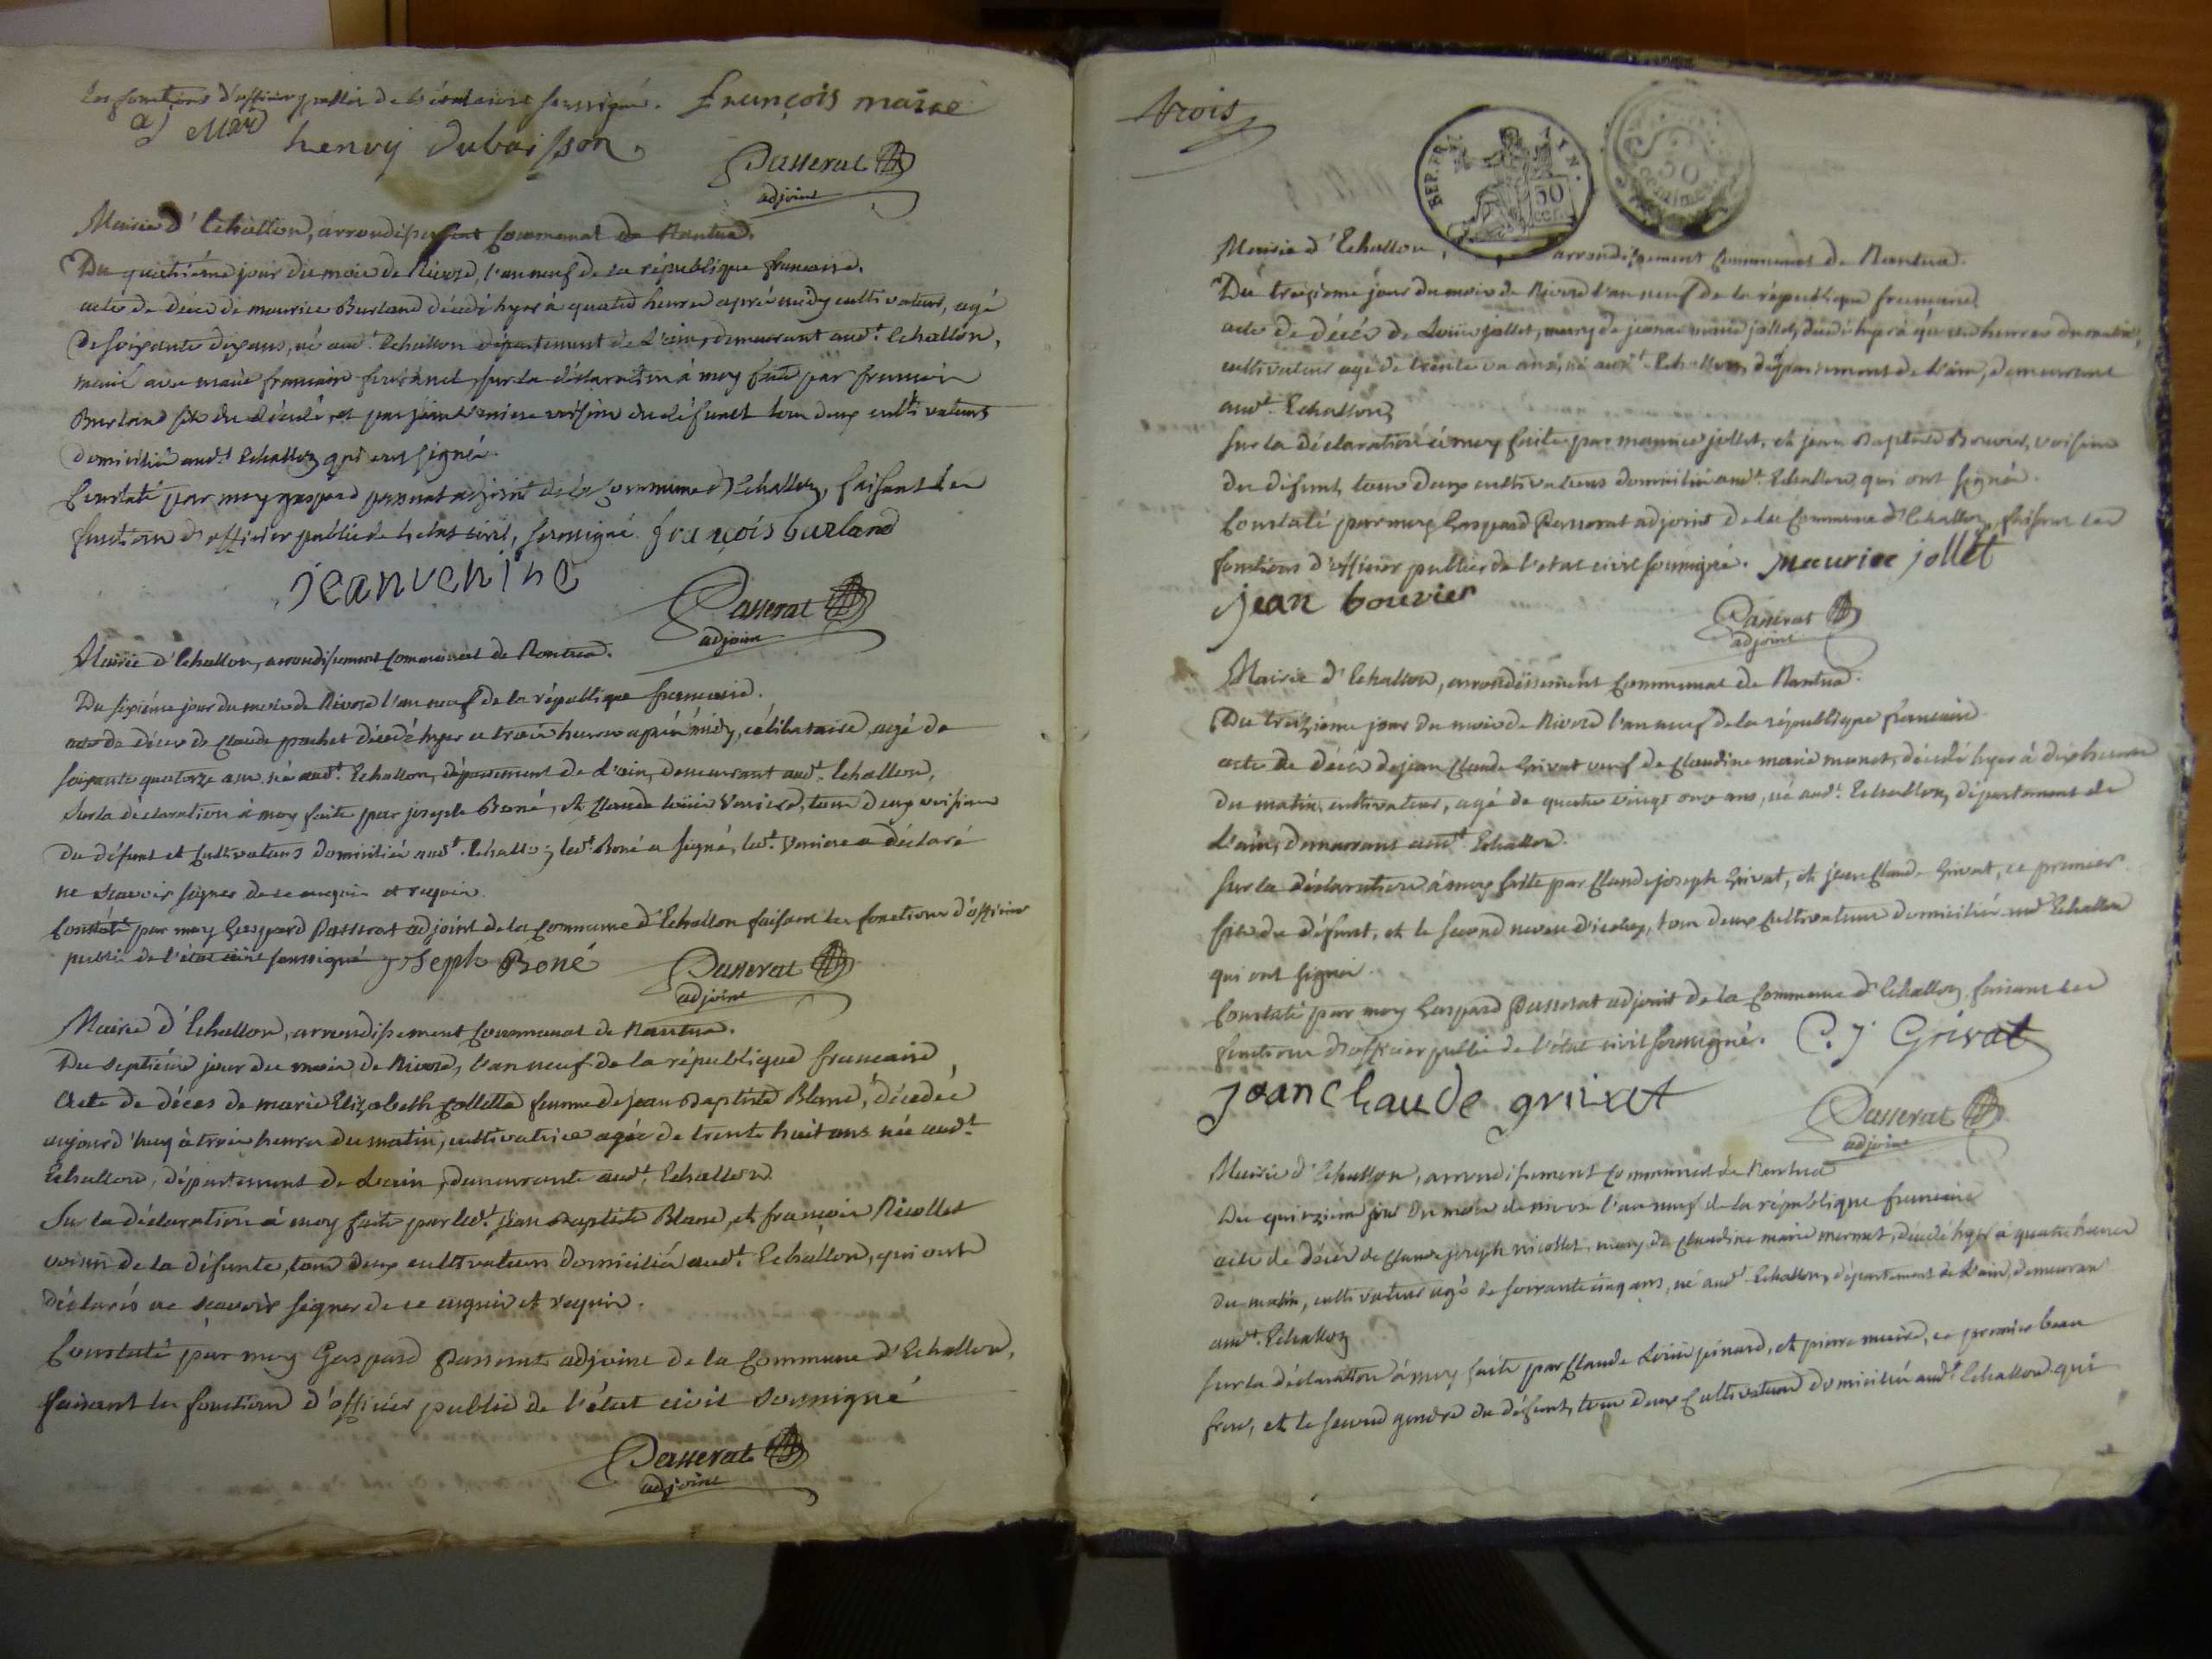 les fonctions d'officier public de l'état civil soussigné. françois maire
henry dubuisson
Passerat
adjoint
Mairie d'Echallon, arrondissement communal de Nantua.
Du quatriéme jour du mois de Nivose, l'an neuf de la république francaise.
acte de décès de maurice Burland décédé hyer à quatre heures aprés midy cultivateur, agé
de soixante dix ans, né audt. Echallon département de l'ain, demeurant audt. Echallon,
marié avec marie francoise sur la déclaration à moy faite par francois
Burland fils du décédé, et par jean voisin du défunct tous deux cultivateurs
domicilié audt. Echallon qui ont signé.
Constaté par moy gaspard passerat adjoint de la commune d'Echallon, faisant les
fonctions d'officier public de l'etat civil, soussigné. françois burland
jean
Passerat
adjoint
Mairie d'Echallon, arrondissement communal de Nantua.
Du sixiéme jour du mois de Nivose l'an neuf de la république francaise.
acte de décès de Claude pochet décédé hyer a trois heures aprés midy, célibataire, agé de
soixante quatorze ans né audt. Echallon, département de l'ain, demeurant audt. Echallon,
Sur la déclaration à moy faite par joseph Boné, et Claude louis Verriere, tous deux voisins
du défunt et cultivateurs domicilié audt. Echallon; ledt. Boné a signé, ledt. Verriere a déclaré
ne scavoir signer de ce enquis et requis.
Constaté par moy Gaspard Passerat adjoint de la commune d'Echallon faisant les fonctions d'officier
public de l'état civil soussigné joseph Boné
Passerat
adjoint
Mairie d'Echallon, arrondissement communal de Nantua.
Du septiéme jour du mois de Nivose, l'an neuf de la république francaise,
Acte de décès de marie Elizabeth Collette femme de jean Baptiste Blanc, décedée
aujourd'huy à trois heures du matin, cultivatrice agée de trente huit ans née audt.
Echallon, département de L'ain, demeurante audt. Echallon
Sur la déclaration à moy faite par ledt. jean Baptiste Blanc, et francois Nicollet
voisin de la défunte, tous deux cultivateurs domicilié audt. Echallon, qui ont
déclarés ne scavoir signer de ce enquis et requis.
Constaté par moy Gaspard Passerat adjoint de la Commune d'Echallon,
faisant les fonctions d'officier public de l'état civil soussigné
Passerat
adjoint
trois
REP. FRA.
50
cen.
50
Mairie d'Echallon, arrondissement communal de Nantua.
Du treizieme jour du mois de Nivose l'an neuf de la république francaise
acte de décès de Louis jollet, mary de jeanne marie jollet, décédé hyer à heures du matin,
cultivateur agé de trente un ans, né audt. Echallon, département de l'ain, demeurant
audt. Echallon
sur la déclaration à moy faite par maurice jollet, et jean Baptiste Bouvier, voisins
du défunt, tous deux cultivateurs domicilié audt. Echallon, qui ont signé.
Constaté par moy Gaspard Passerat adjoint de la Commune d'Echallon, faisant les
fonctions d'officier public de l'etat civil soussigné. maurice jollet
jean bouvier
Passerat
adjoint
Mairie d'Echallon, arrondissement communal de Nantua.
Du treiziéme jour du mois de Nivose l'an neuf de la république francaise
acte de décès de jean Claude Grivat veuf de Claudine marie décédé hyer à dix heures
du matin, cultivateur, agé de quatre vingt onze ans, né audt. Echallon, département de
l'ain, demeurant audt. Echallon.
Sur la déclaration à moy faite par Claude joseph Grivat, et jean Claude Grivat, ce premier
fils du défunt, et le second neveu d'iceluy, tous deux cultivateurs domicilié audt. Echallon
qui ont signé.
Constaté par moy Gaspard Passerat adjoint de la Commune d'Echallon, faisant les
fonctions d'officier public de l'état civil soussigné. C. j Grivat
jean Claude grivat
Passerat
adjoint
Mairie d'Echallon, arrondissement communal de Nantua
Du quinzieme jour du mois de nivose l'an neuf de la république francaise
acte de décès de Claude joseph nicollet, mary de Claudine marie mermet, décédé hyer à quatre heures
du matin, cultivateur agé de soixante cinq ans, né audt. Echallon, département de l'ain, demeurant
audt. Echallon
sur la déclaration à moy faite par Claude Louis et pierre maire, ce premier beau
frere, et le second gendre du défunt, tous deux cultivateurs domicilié audt. Echallon qui